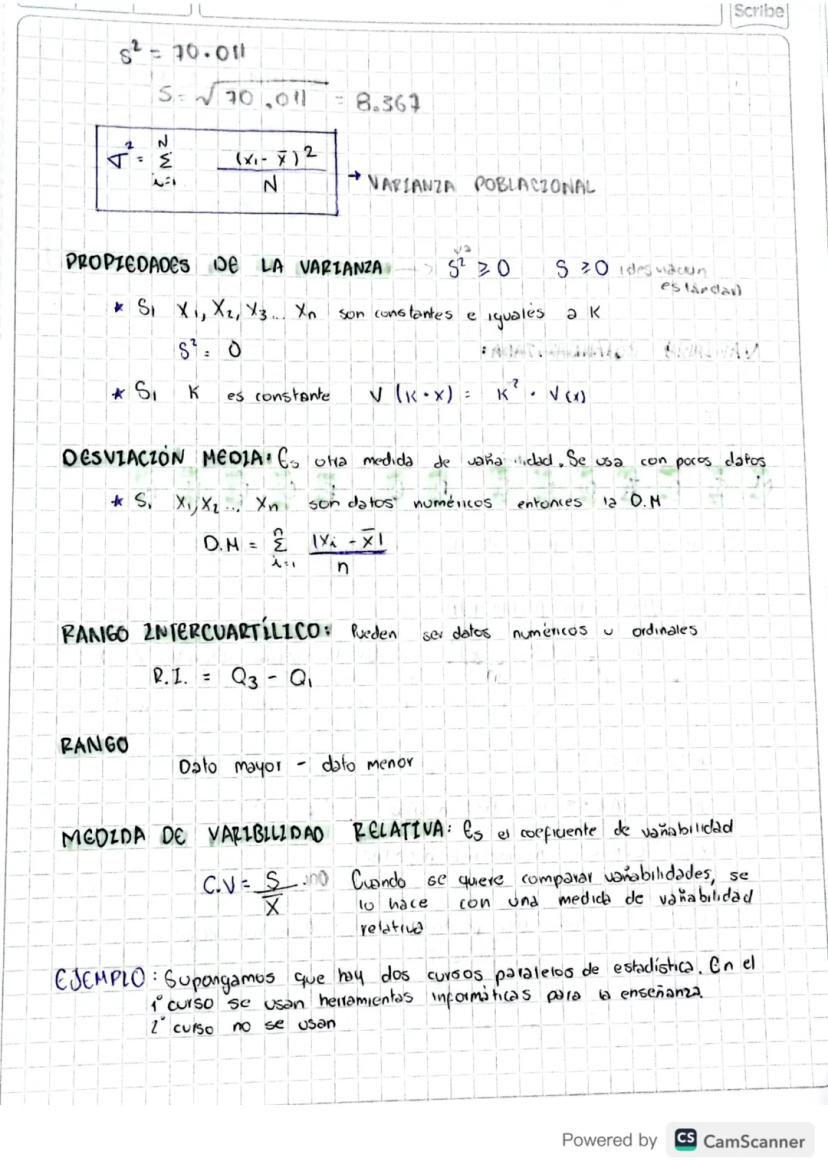 Scribe
S² = 70.011
S = √70.011 = 8.367
σ² = Σ (xi - x̄)² / N → VARIANZA POBLACIONAL
N
i=1
PROPIEDADES DE LA VARIANZA → S² ≥ 0 S ≥ 0 (desviación
estándar)
* Si X1, X2, X3... Xn son constantes e iguales a K
S² = 0
* Si K es constante V (K · x) = K² · V(x)
DESVIACIÓN MEDIA: Es otra medida de variabilidad. Se usa con pocos datos
* Si X1, X2 ..., Xn son datos numéricos entonces la D.M
D.M = Σ |Xi - X̄| / n
n
i=1
RANGO INTERCUARTÍLICO: Pueden ser datos numéricos u ordinales
R.I. = Q3 - Q1
RANGO
Dato mayor - dato menor
MEDIDA DE VARIBILIDAD RELATIVA: Es el coeficiente de variabilidad
C.V = S / X̄ .100 Cuando se quiere comparar variabilidades, se
lo hace con una medida de variabilidad
relativa
EJEMPLO: Supongamos que hay dos cursos paralelos de estadística. En el
1° curso se usan herramientas informáticas para la enseñanza.
2° curso no se usan
Powered by CS CamScanner